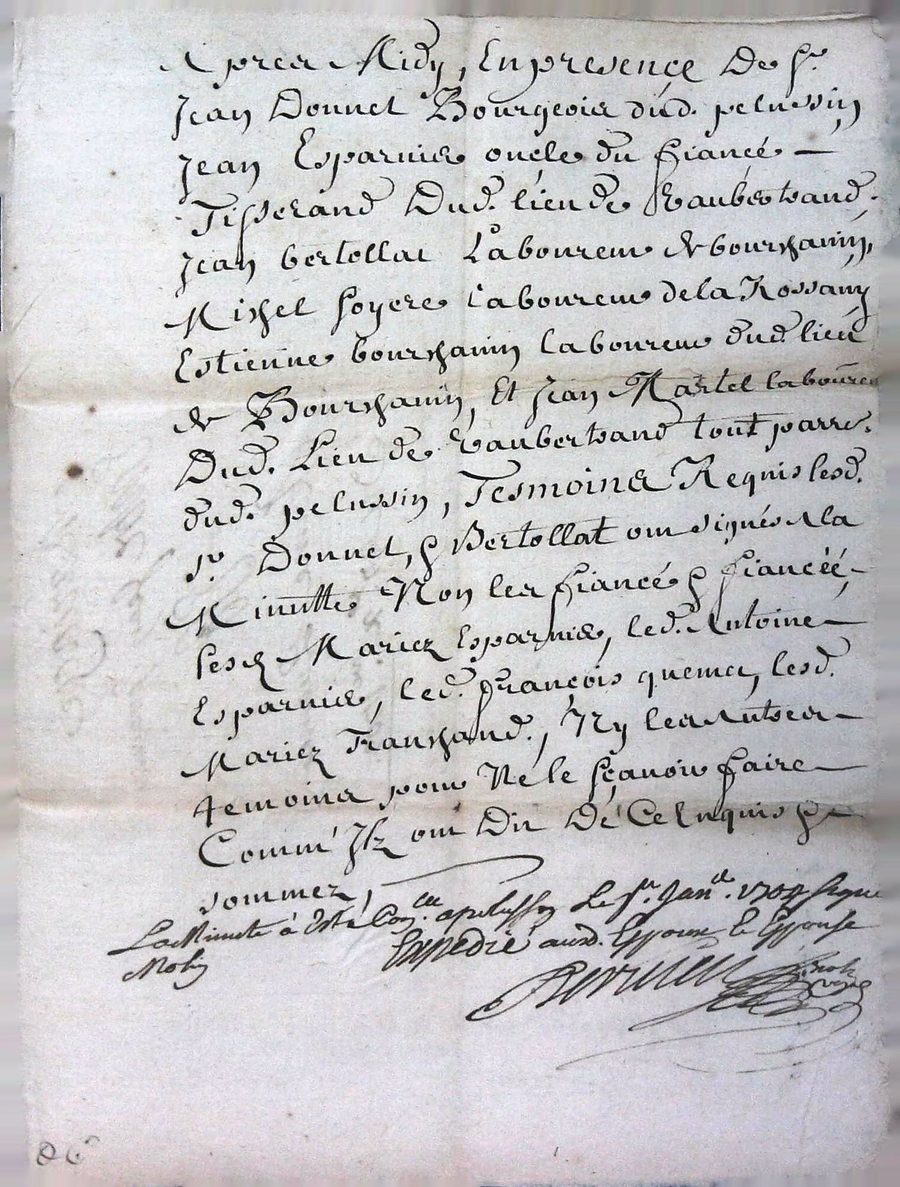 Apres Midy, En presence De sr.
Jean Donnet Bourgeois dud. pelussin
Jean Esparnier oncle du fiancé
Tisserand Dud. lieu de Vaubertrand.
Jean bertollat Laboureur de bourchanin,
Michel soyere Laboureur de la Rossary
Estienne bourchanin laboureur dud. lieu
de Bourchanin, Et Jean Martel laboureur
Dud. Lieu de Vaubertrand tout parre.
dud. pelussin, Tesmoins Requis lesd.
sr. Donnet, & Bertollat ont signés a la
Minutte Non les fiancé & fiancéé,
lesd Mariez Esparnier, led. Antoine
Esparnier, led. françois quemet, lesd.
Mariez Tranchand., Ny les Autres
temoins pour Ne le sçauoir faire
Comm' Ilz ont Dit De Ce Enquis &
sommez,
La Minute à Esté a pelussin Le Janr. 1704 signé
Expedié ausd. Espoux & Espouse